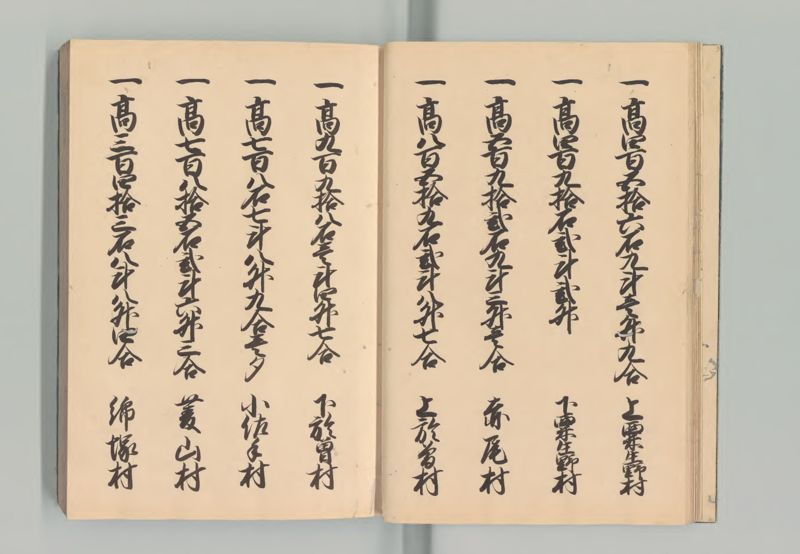 一 高四百五拾六石九斗壱升九合 上粟生野村
一 高四百九拾石弐斗弐升 下粟生野村
一 高五百九拾弐石九斗三升壱合 赤尾村
一 高八百五拾九石弐斗八升七合 上於曽村
一 高九百九拾八石壱斗四升七合 下於曽村
一 高七百八石七斗八升九合壱夕 小佐手村
一 高七百八拾五石弐斗六升二合 菱山村
一 高三百四拾三石八斗八升四合 綿塚村